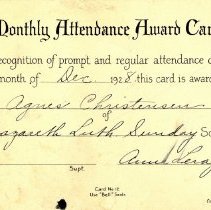 Monthly Attendance Award Car
ecognition of prompt and regular attendance d
month of Dec 1928 this card is award
Agnes Christensen
of
azareth Luth Sunday Sc
Ann
Supt.
Card No 11
Use "Bell" Seals